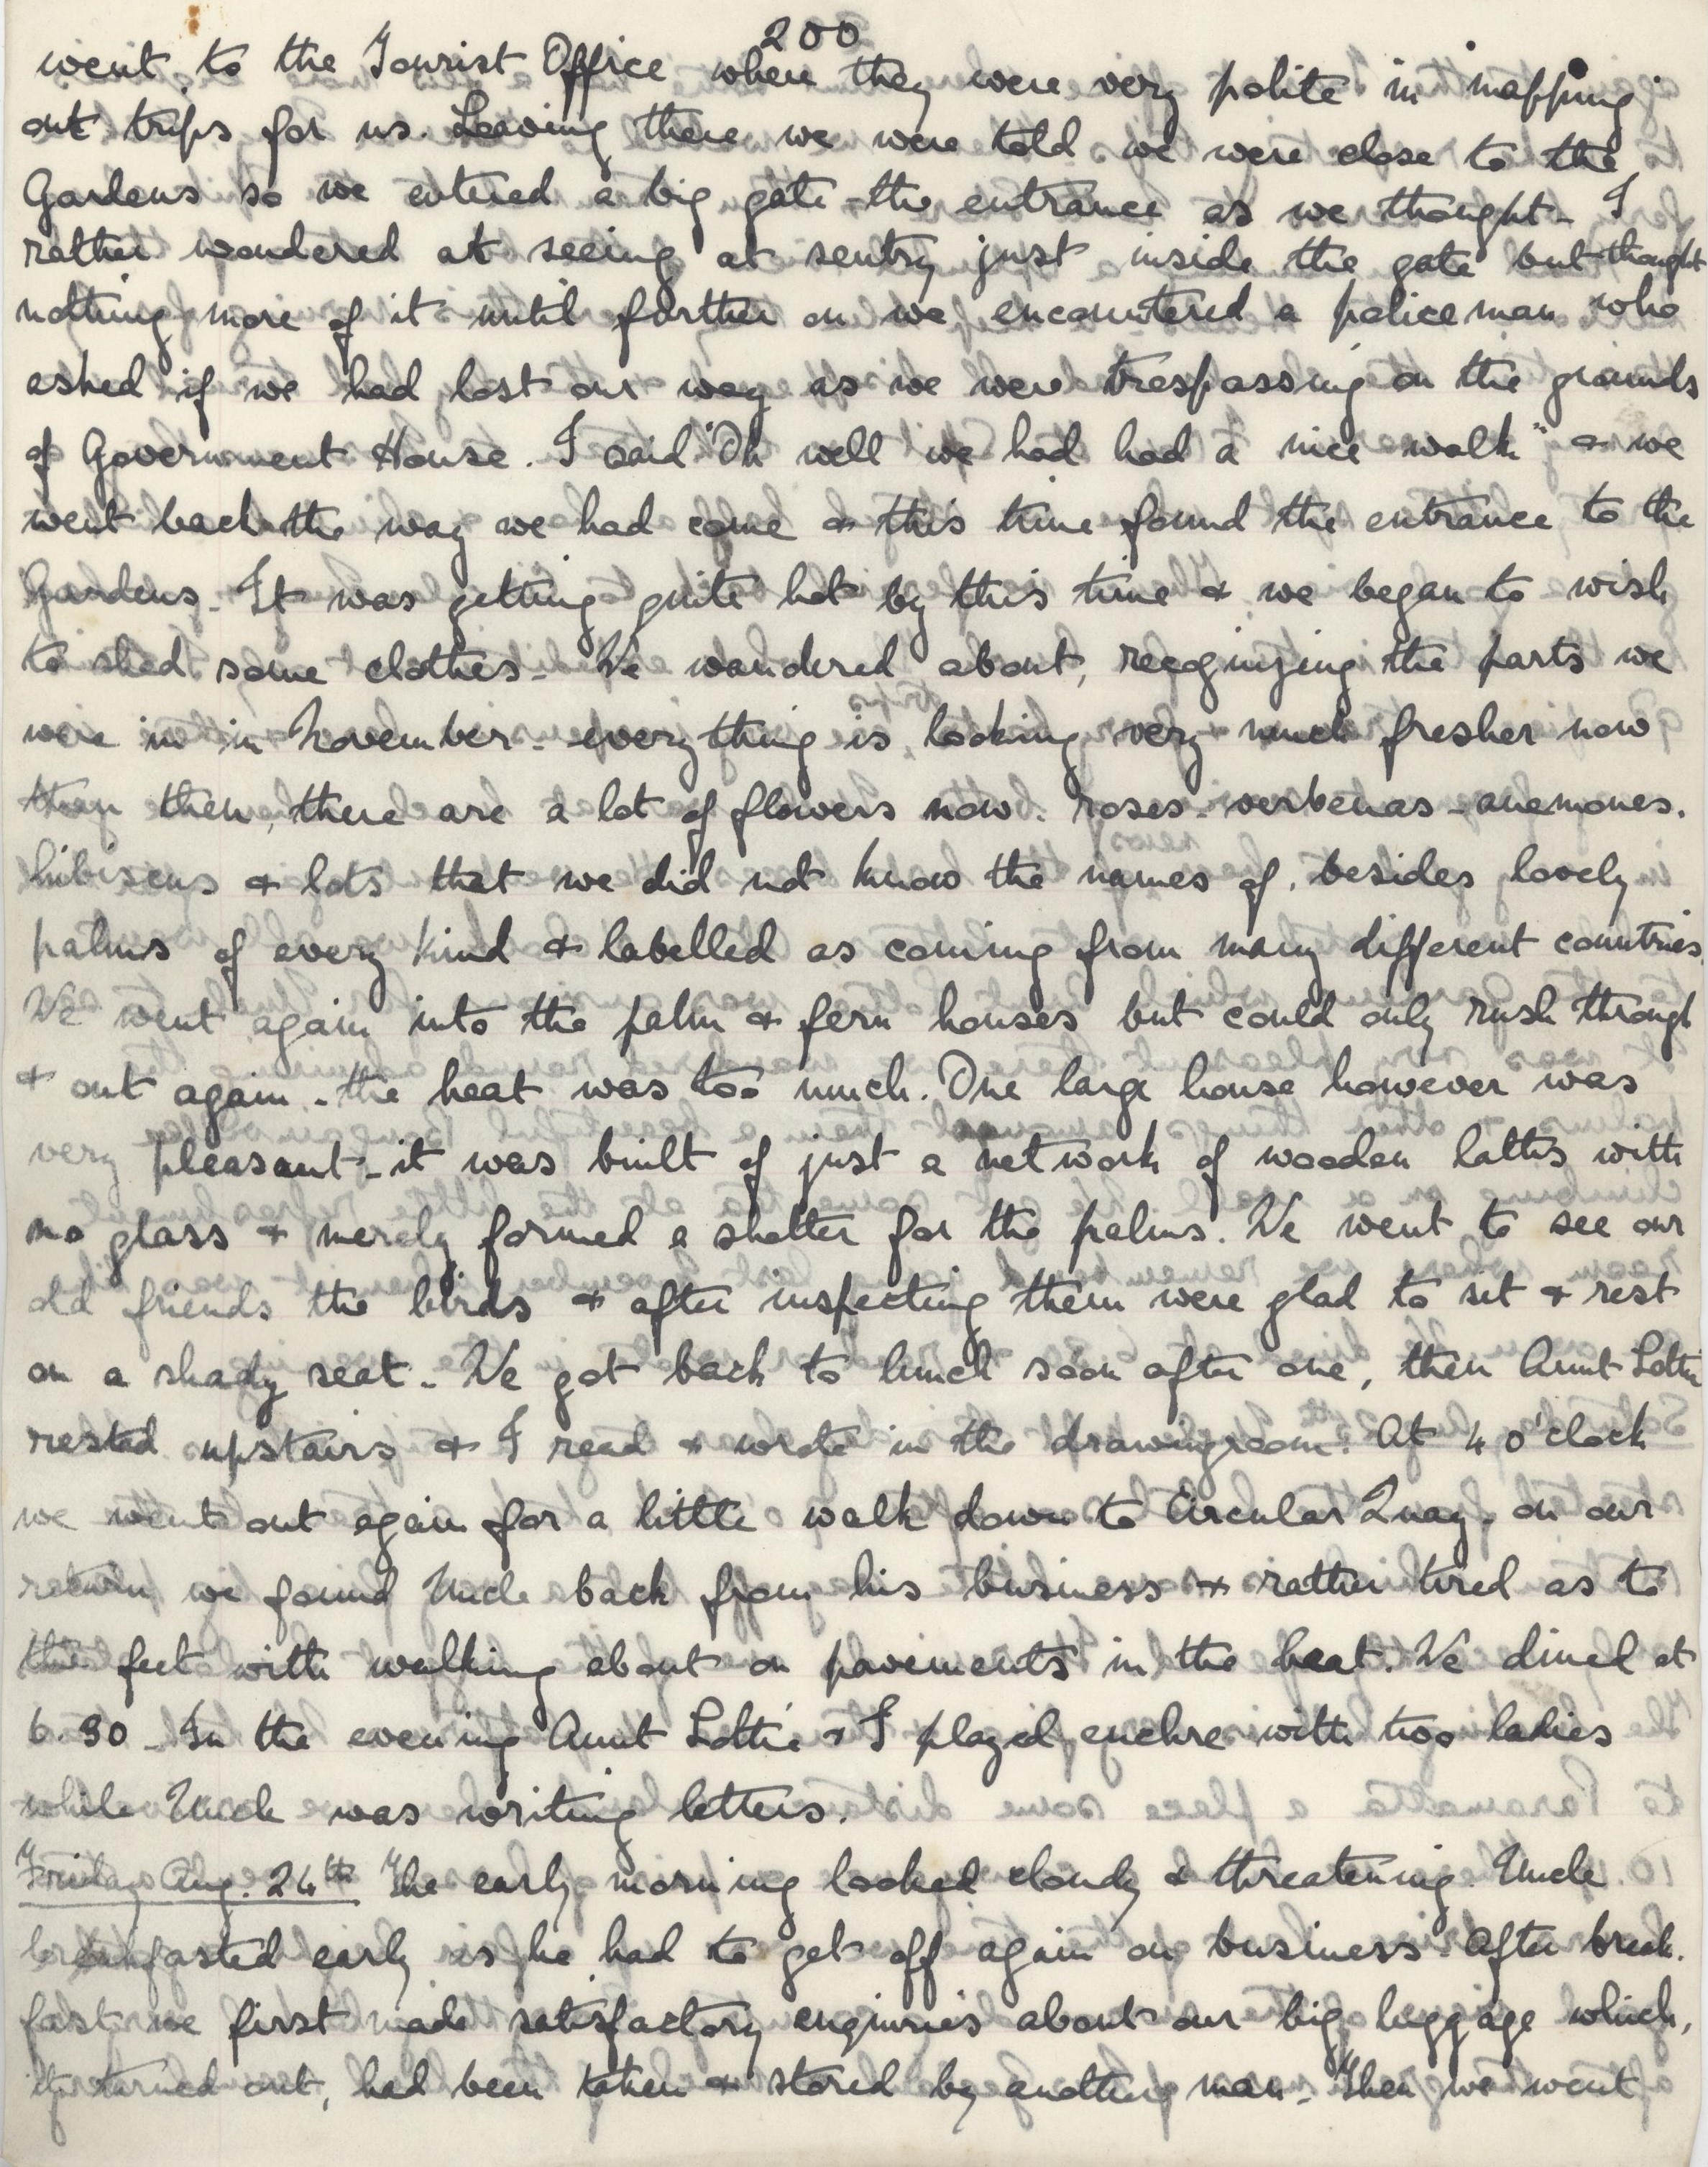 200
went to the Tourist Office where they were very polite in mapping
out trips for us. Leaving there we were told we were close to the
Gardens so we entered a big gate - the entrance as we thought - I
rather wondered at seeing at sentry just inside the gate but thought
nothing more of it until further on we encountered a policeman who
asked if we had lost our way as we were trespassing on the grounds
of Government House. I said "Oh well we had had a nice walk" & we
went back the way we had come & this time found the entrance to the
Gardens. It was getting quite hot by this time & we began to wish
to shed some clothes - We wandered about, recognizing the parts we
were in in November - everything is looking very much fresher now
than then, there are a lot of flowers now. roses - verbenas - anemones.
hibiscus & lots that we did not know the names of, besides lovely
palms of every kind & labelled as coming from many different countries.
We went again into the palm & fern houses but could only rush through
& out again - the heat was too much. One large house however was
very pleasant - it was built of just a network of wooden laths with
no glass & merely formed a shelter for the palms. We went to see our
old friends the birds & after inspecting them were glad to sit & rest
on a shady seat - We got back to lunch soon after one, then Aunt Lottie
rested upstairs & I read & wrote in the drawingroom. At 4 o'clock
we went out again for a little walk down to Circular Quay. on our
return we found Uncle back from his business & rather tired as to
the feet with walking about on pavements in the heat. We dined at
6.30 - In the evening Aunt Lottie & I played euchre with two ladies
while Uncle was writing letters.
Friday Aug. 24th The early morning looked cloudy & threatening. Uncle
breakfasted early as he had to get off again on business. After break-
fast we first made satisfactory enquiries about our big luggage which,
it turned out, had been taken & stored by another man - Then we went